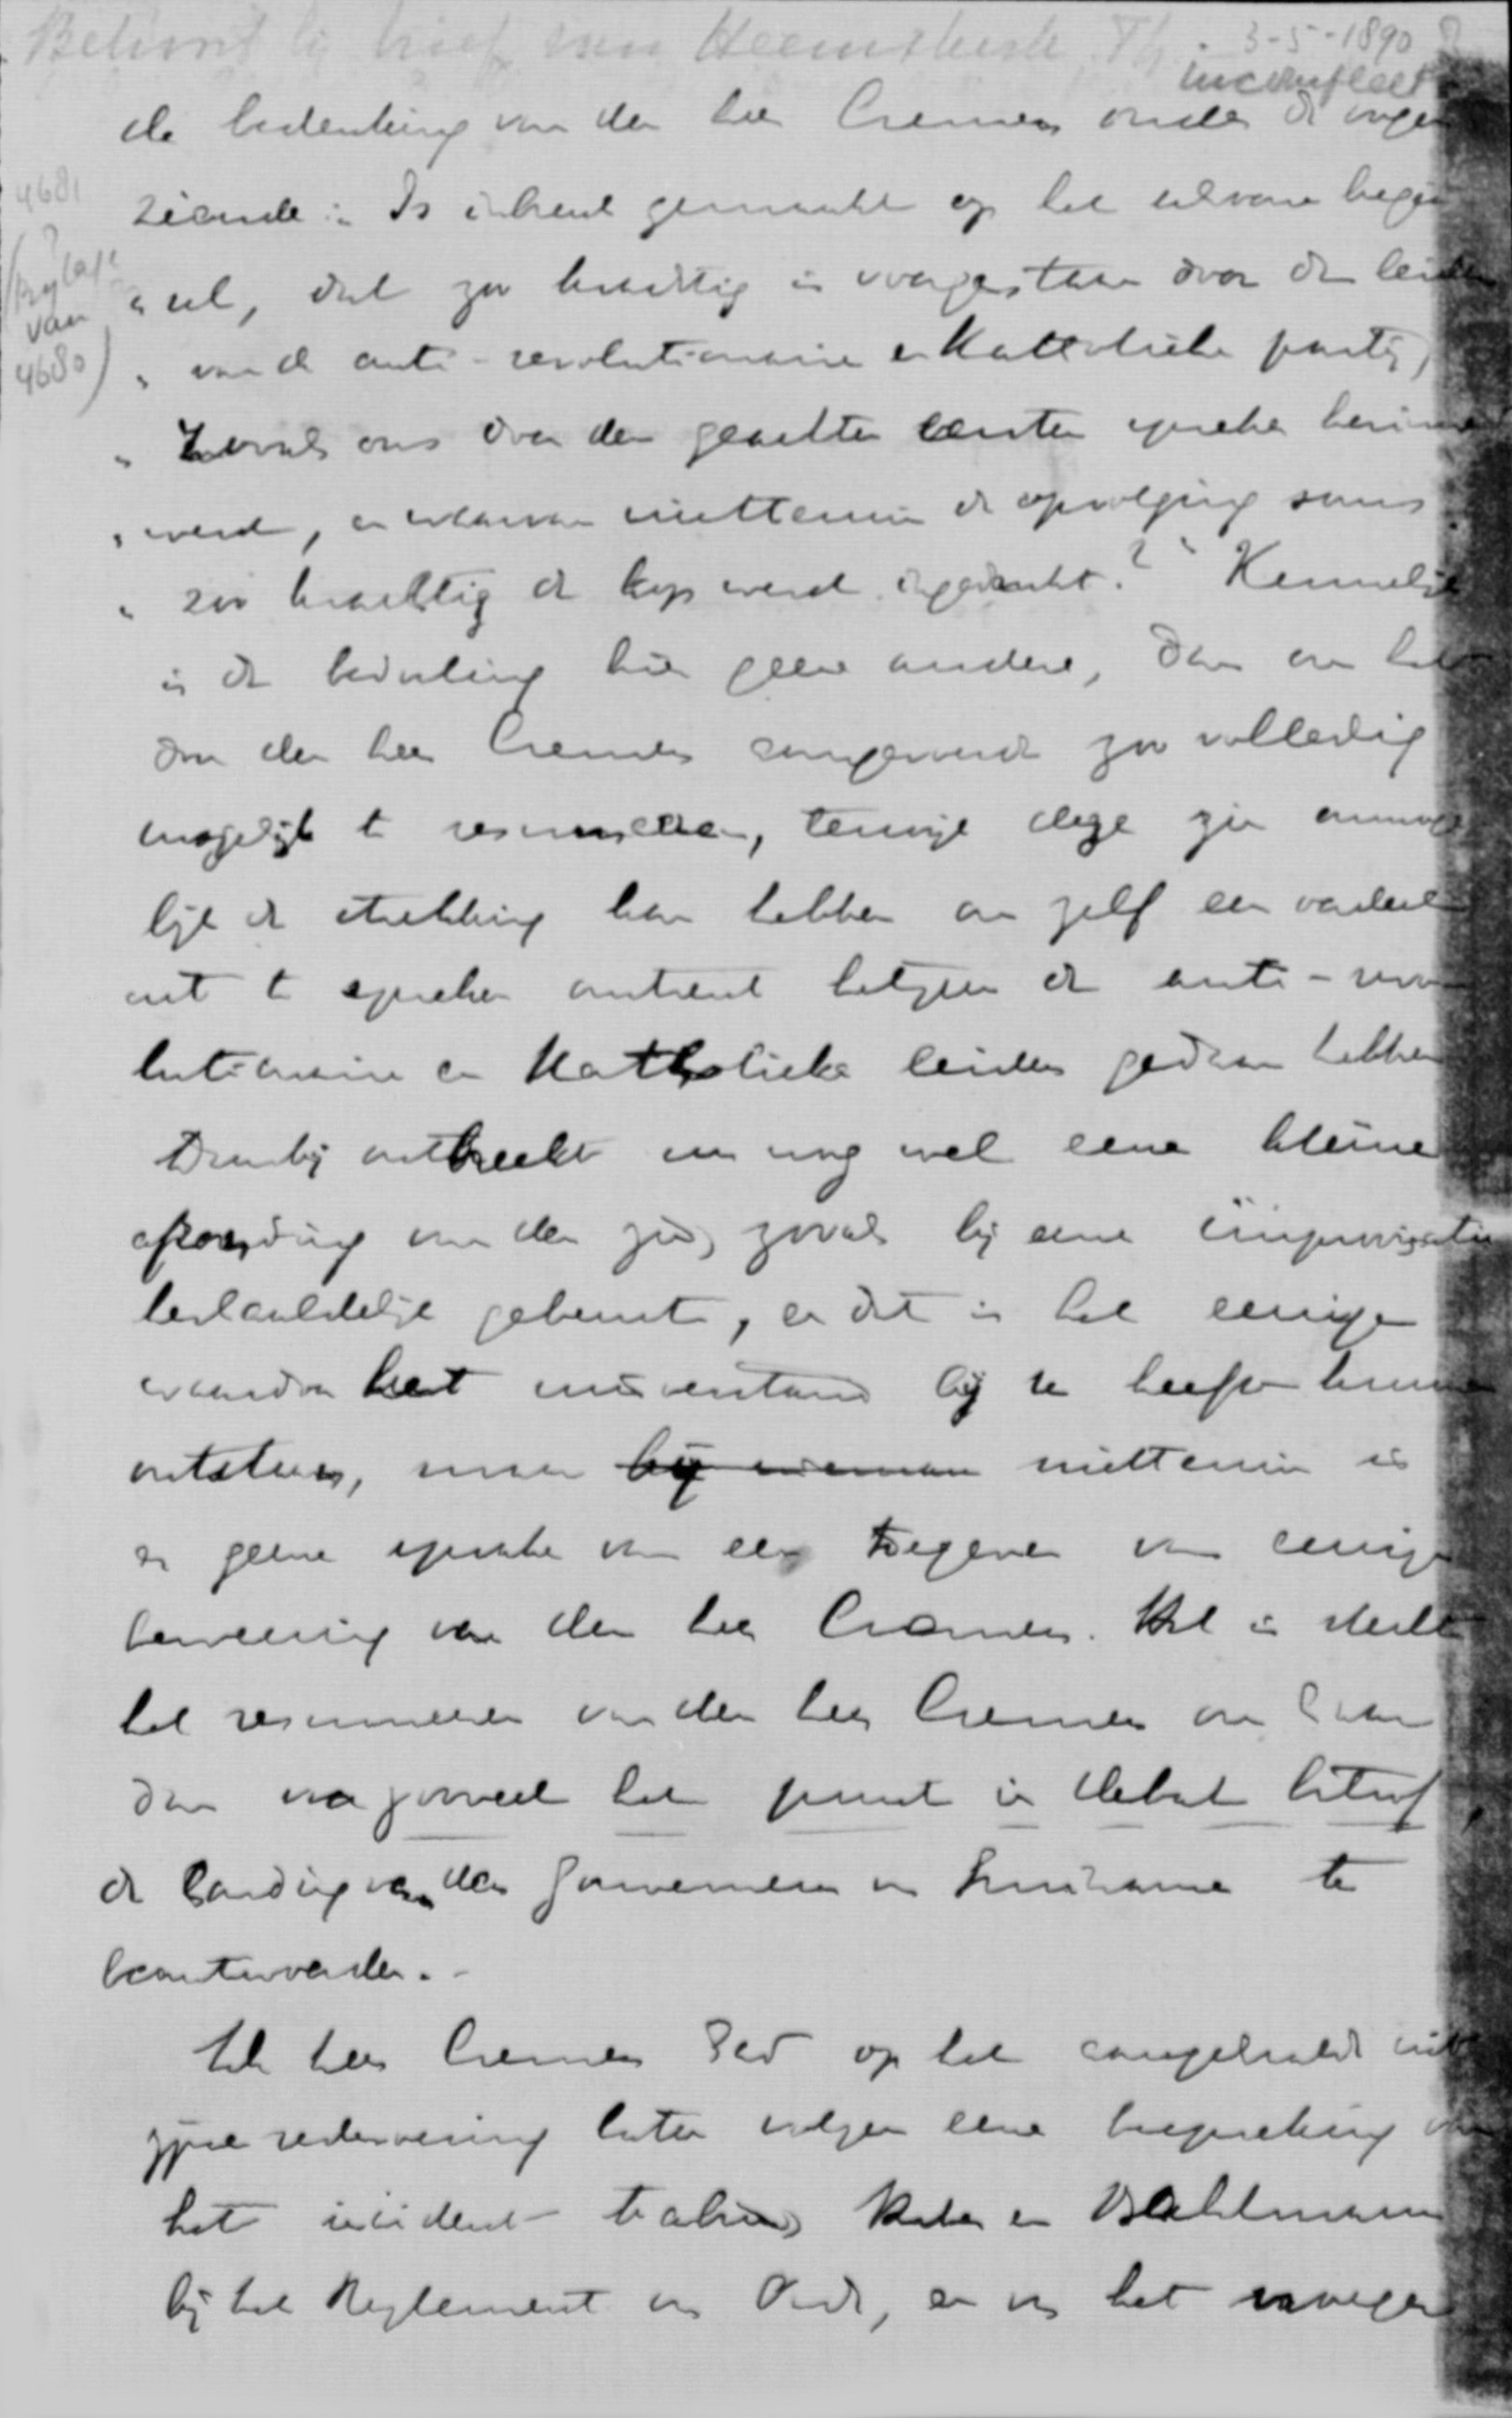 Behoort bij brief van Heemskerk Th. 3-5-1890
incompleet
4681
(bijlage
van
4680)
de bedenking van den heer Cremer onder de oogen
ziende: Is inbreuk gemaakt op het ware begin
" sel, dat zoo krachtig is voorgestaan door de leiders
" van de anti-revolutionaire en Katholieke partij,
" zooals ons door den geachten eersten spreker herinnerd
" werd, en waarvan niettemin de opvolging soms
" zoo krachtig de kop werd ingedrukt?" Kennelijk
is de bedoeling hier geene andere, dan om het
door den heer Cremer aangevoerde zoo volledig
mogelijk te resumeeren, terwijl deze zin onmoge
lijk de strekking kan hebben om zelf een oordeel
uit te spreken omtrent hetgeen de anti-revo
lutionaire en Katholieke leiders gedaan hebben
Daarbij ontbreekt nu nog wel eene kleine
afronding van den zin, zooals bij eene improvisatie
herhaaldelijk gebeurt, en dat is het eenige
waardoor het misverstand bij u heeft kunnen
ontstaan, maar bij niemand niettemin is
er geene sprake van een toegeven van eenige
bewering van den heer Cremer. Het is slechts
het resumeeren van den heer Cremer om daar
dan voor zooveel het punt in debat betrof,
de houding van den Gouverneur van Suriname te
beantwoorden. -
De heer Cremer liet op het aangehaalde uit
zijne redevoering later volgen eene bespreking van
het incident tusschen Keter en Bahlmann
bij het Reglement van Orde, en van het